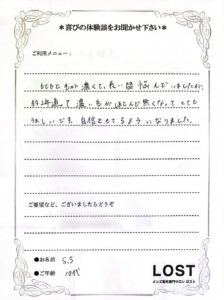 ＊喜びの体験談をお聞かせ下さい＊
ご利用メニュー：
もともと毛が濃くて、長い間悩んでいましたが、
約2年通って濃い毛がほとんど無くなってとても
うれしいです。自信をもてるようになりました。
ご要望など、ございましたらどうぞ
●お名前 S.S
●ご年齢 10代
LOST
メンズ脱毛専門サロン ロスト